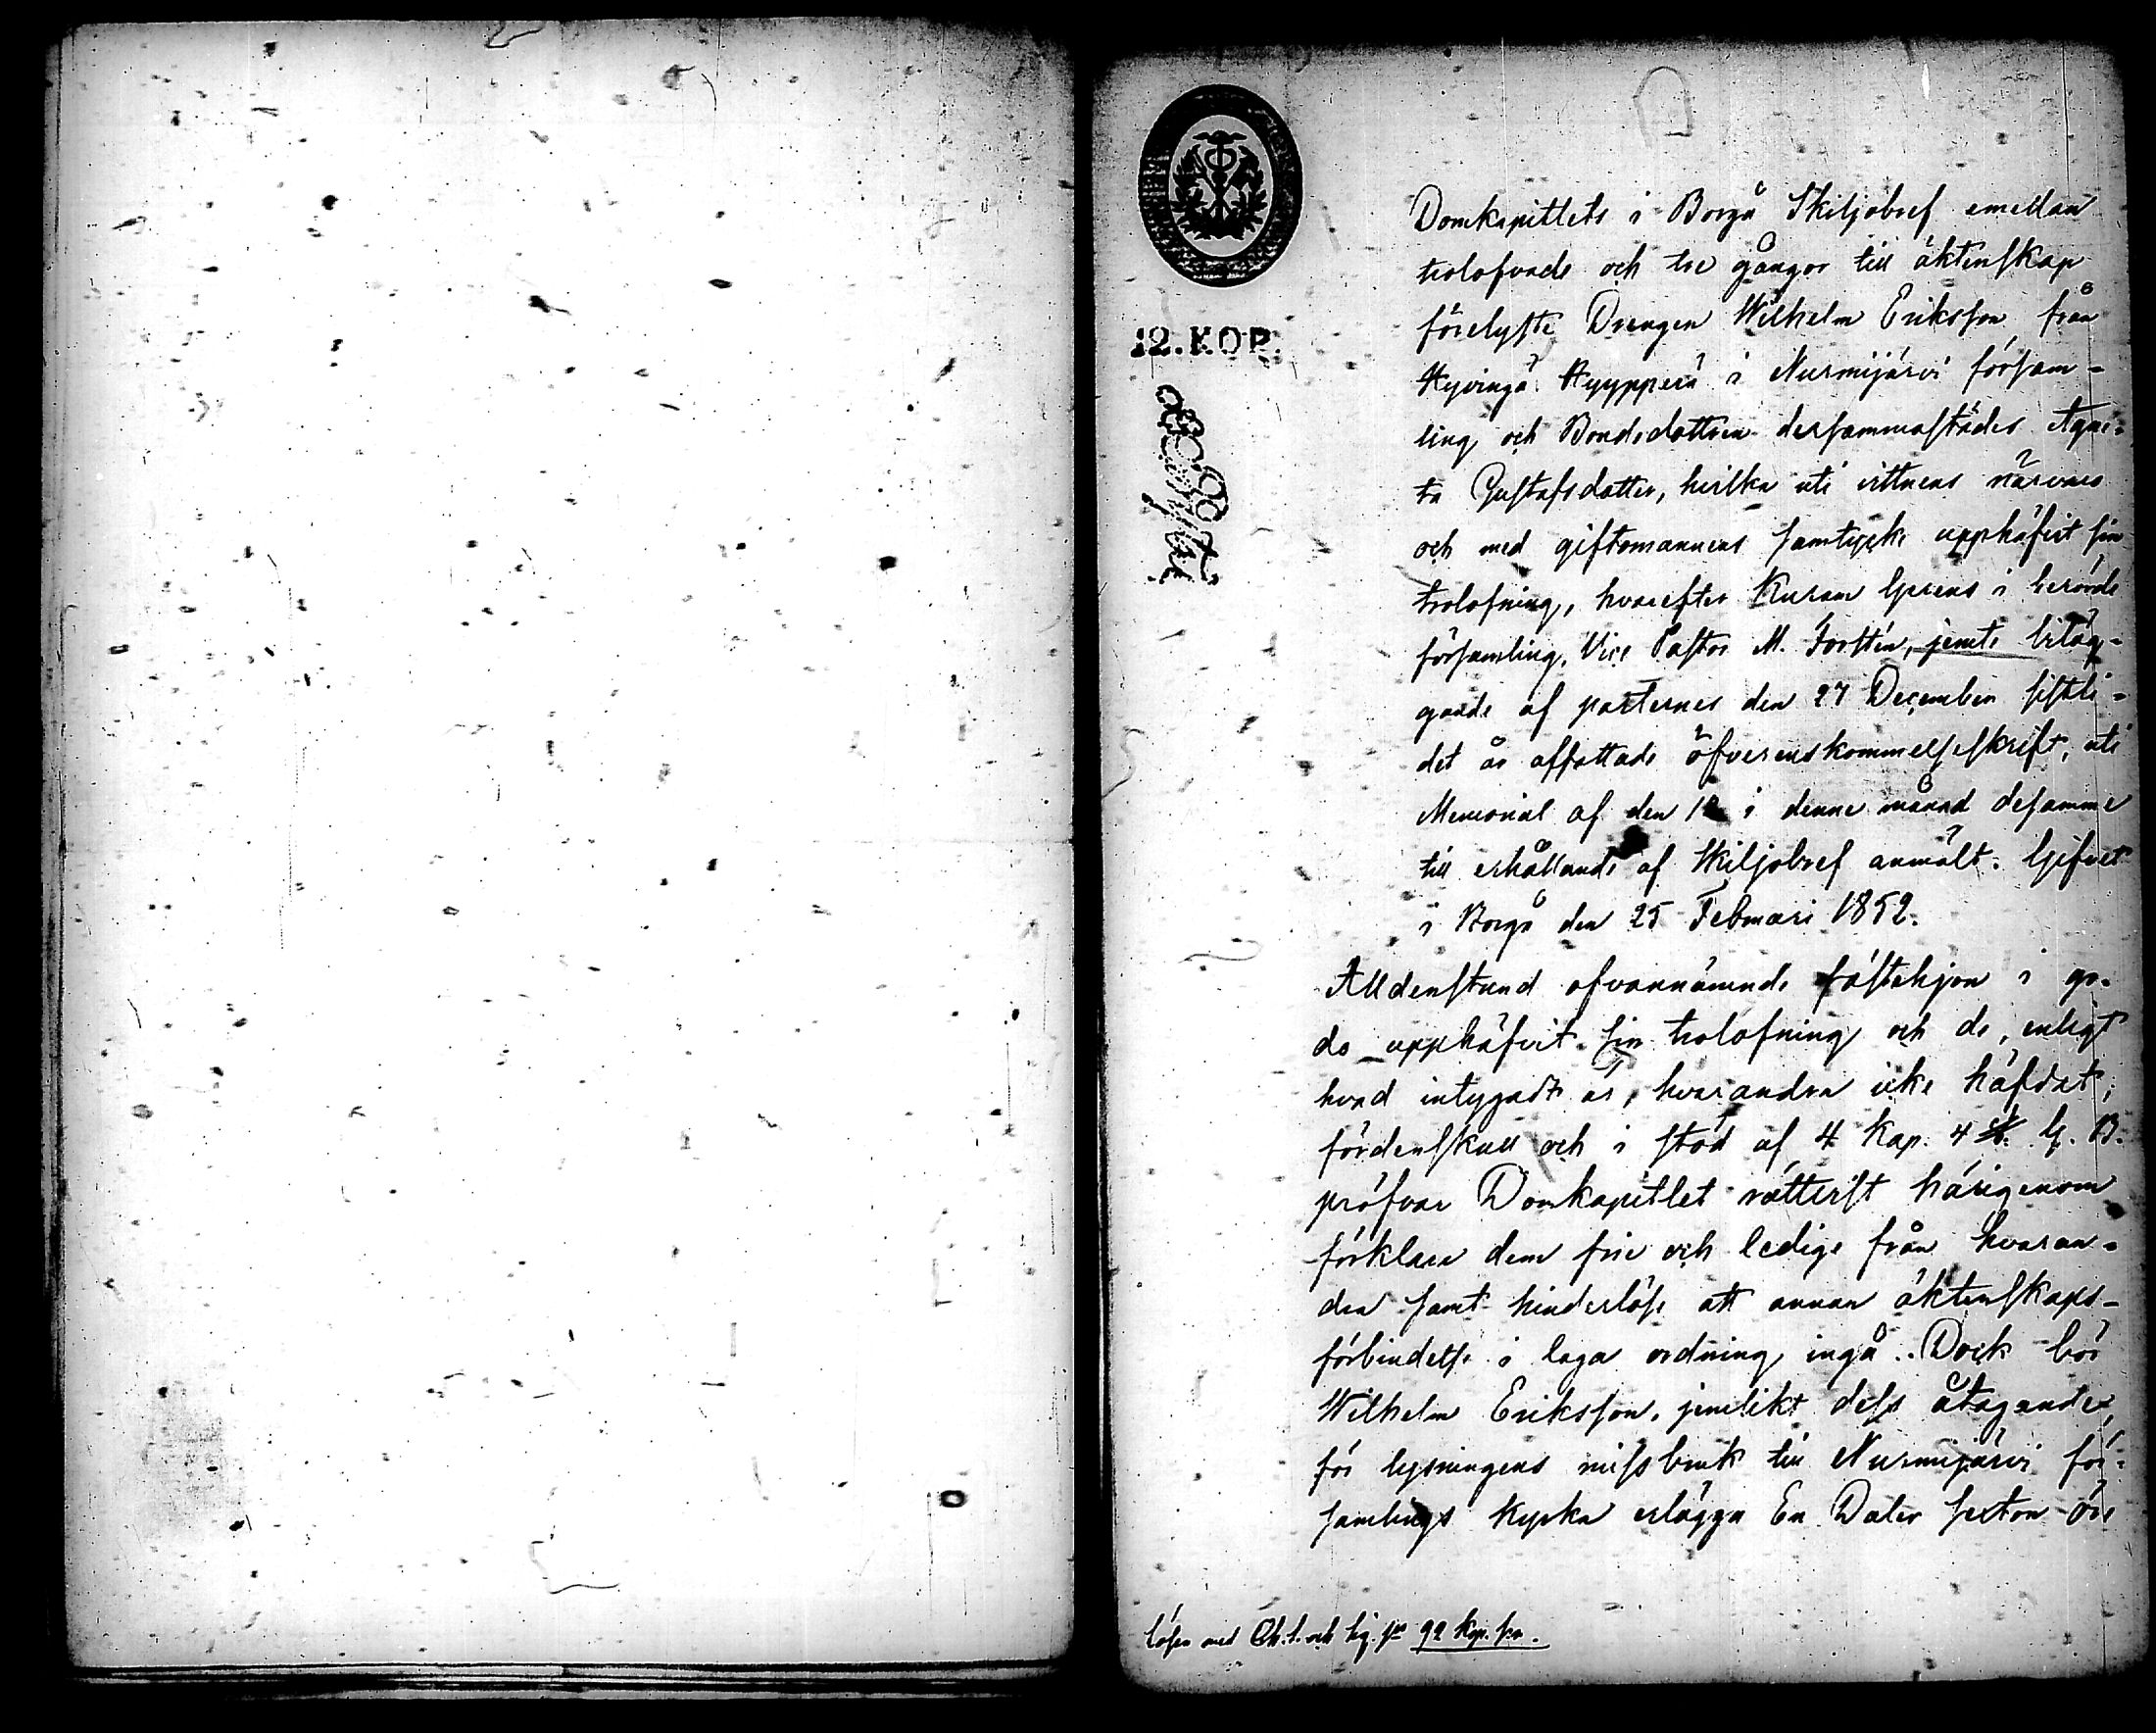 12. KOP.
Domkapittlets i Borgå Skiljobref emellan
trolofvade och tre gångor till äktenskap
förelyste Drengen Wilhelm Eriksson från
Hyvingä Hyyppärä i Nurmijärvi försam-
ling och Bondedottren dersammastädes Agne-
ta Gustafsdotter, hvilka uti vittnens närvaro
och med giftomannens samtycke upphäfvit sin
trolofning, hvarefter Kuram Gerens i berörde
församling, Vice Pastor M. Forstén, jemte biläg-
gande af parternes den 27 December sistli-
det år affattade öfverenskommelseskrift, uti
Memorial af den 12 i denne månad desamme
till erhållande af Skiljobref anmält. Gifvet
i Borgå den 25 Februari 1852.
Alldenstund ofvannämnde fästehjon i go-
do upphäfvit sin trolofning och de, enligt
hvad intygadt är, hvarandra icke häfdat;
fördenskull och i stöd af 4 Kap. 4 §. G. B.
pröfvar Domkapitlet rättvist härigenom
förklara dem frie och ledige från hvaran-
dra samt hinderlöse att annan äktenskaps-
förbindelse i laga ordning ingå. Dock bör
Wilhelm Eriksson, jemlikt dess åtagande,
för lysningens missbruk till Nurmijärvi för-
samlings kyrka erlägga En Daler sexton öre
Lösen med Ch. s. och 92 Kop. sr.